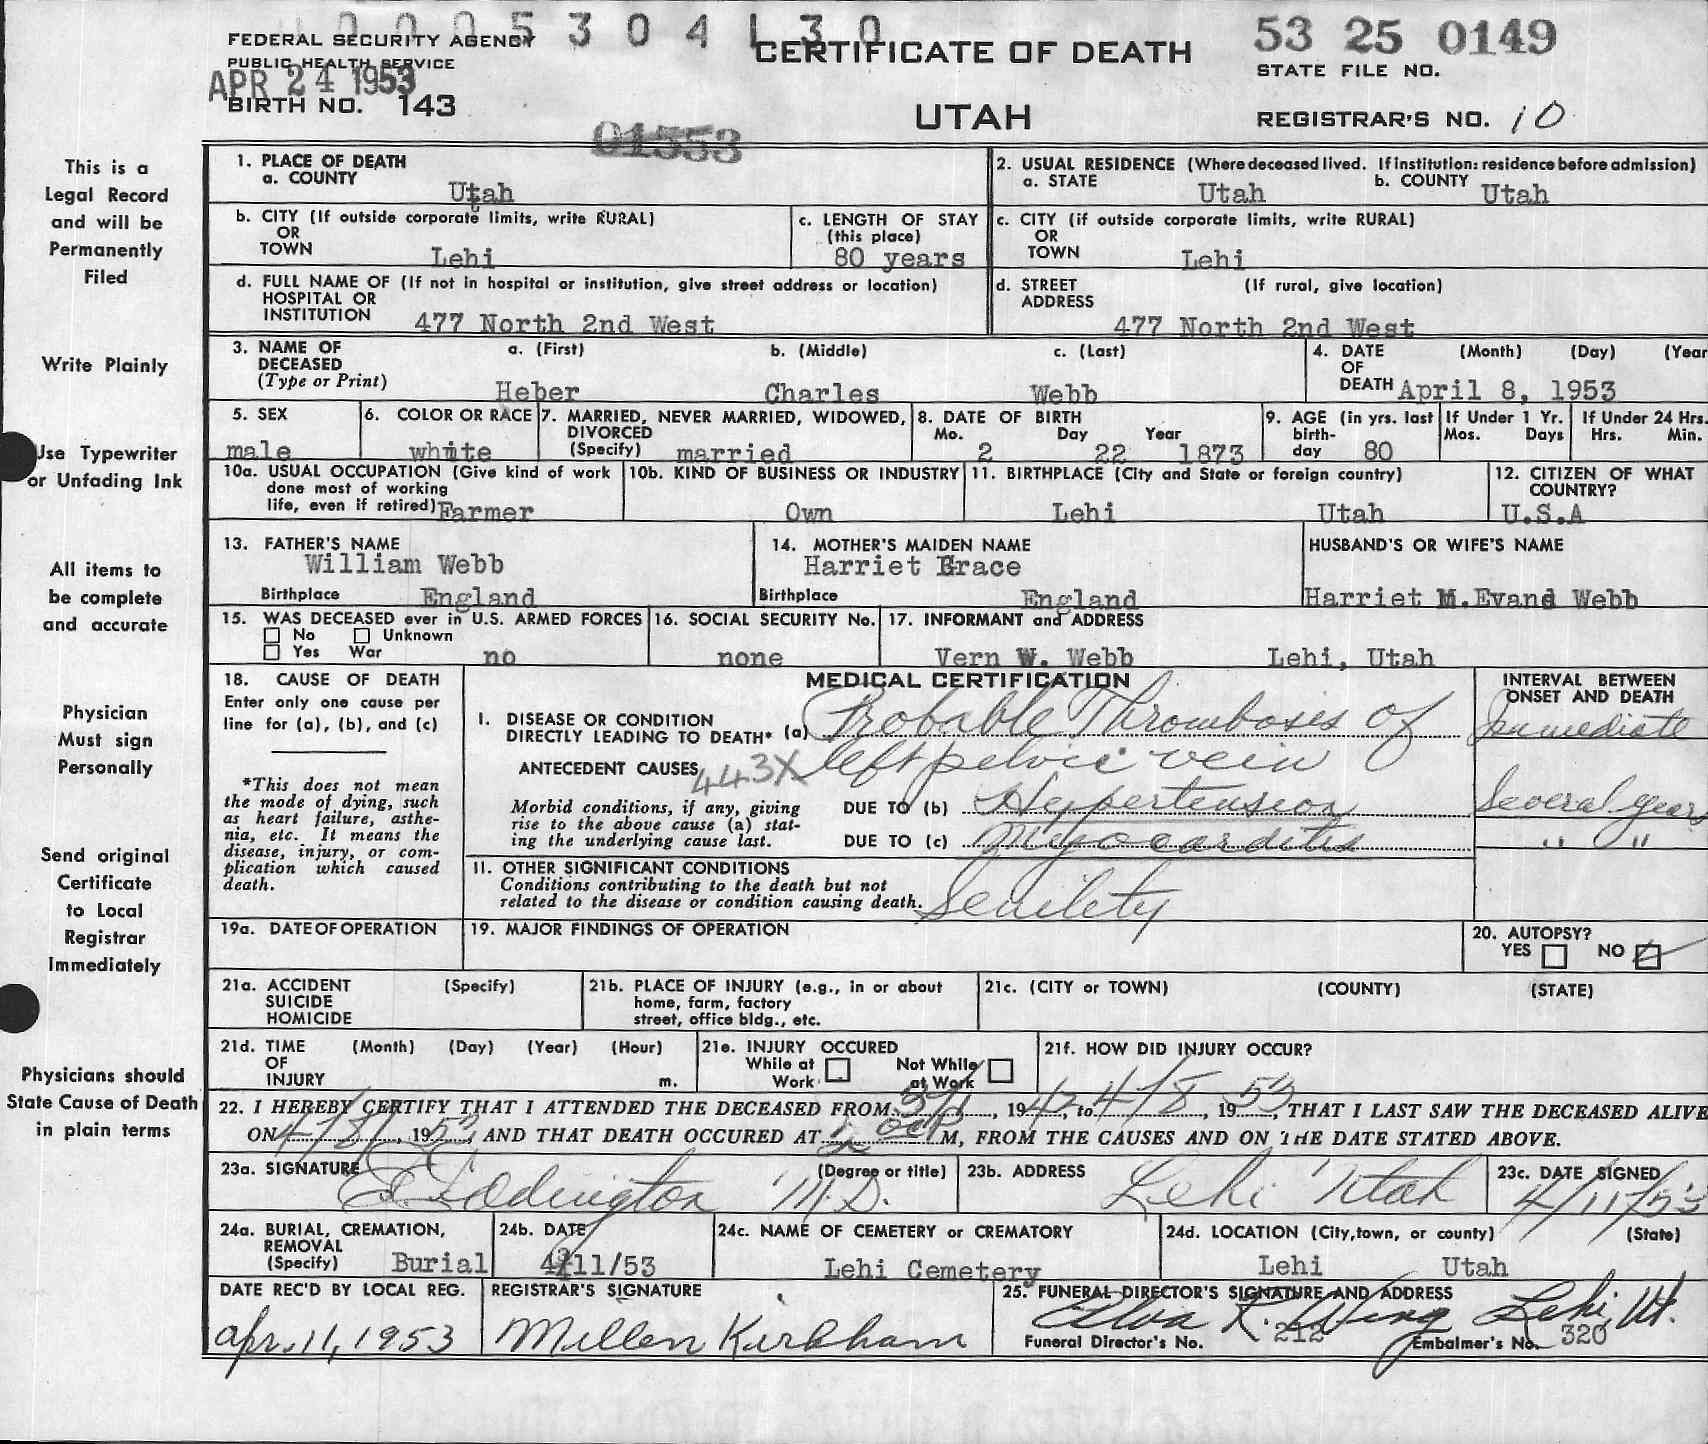 0 0 0 5 3 0 4 1 3 0
FEDERAL SECURITY AGENCY
PUBLIC HEALTH SERVICE
APR 24 1953
BIRTH NO. 143
CERTIFICATE OF DEATH
UTAH
53 25 0149
STATE FILE NO.
REGISTRAR'S NO. 10
01553
This is a
Legal Record
and will be
Permanently
Filed
Write Plainly
Use Typewriter
or Unfading Ink
All items to
be complete
and accurate
Physician
Must sign
Personally
Send original
Certificate
to Local
Registrar
Immediately
Physicians should
State Cause of Death
in plain terms
1. PLACE OF DEATH
a. COUNTY
Utah
2. USUAL RESIDENCE (Where deceased lived. If institution: residence before admission)
a. STATE Utah b. COUNTY Utah
b. CITY (If outside corporate limits, write RURAL)
OR
TOWN Lehi
c. LENGTH OF STAY
(this place)
80 years
c. CITY (if outside corporate limits, write RURAL)
OR
TOWN Lehi
d. FULL NAME OF (If not in hospital or institution, give street address or location)
HOSPITAL OR
INSTITUTION 477 North 2nd West
d. STREET (If rural, give location)
ADDRESS
477 North 2nd West
3. NAME OF a. (First) b. (Middle) c. (Last)
DECEASED
(Type or Print) Heber Charles Webb
4. DATE (Month) (Day) (Year
OF
DEATH April 8, 1953
5. SEX
male
6. COLOR OR RACE
white
7. MARRIED, NEVER MARRIED, WIDOWED,
DIVORCED
(Specify) married
8. DATE OF BIRTH
Mo. Day Year
2 22 1873
9. AGE (in yrs. last
birth-
day 80
If Under 1 Yr.
Mos. Days
If Under 24 Hrs.
Hrs. Min.
10a. USUAL OCCUPATION (Give kind of work
done most of working
life, even if retired) Farmer
10b. KIND OF BUSINESS OR INDUSTRY
Own
11. BIRTHPLACE (City and State or foreign country)
Lehi Utah
12. CITIZEN OF WHAT
COUNTRY?
U.S.A
13. FATHER'S NAME
William Webb
Birthplace England
14. MOTHER'S MAIDEN NAME
Harriet Grace
Birthplace England
HUSBAND'S OR WIFE'S NAME
Harriet M.Evans Webb
15. WAS DECEASED ever in U.S. ARMED FORCES
No Unknown
Yes War no
16. SOCIAL SECURITY No.
none
17. INFORMANT and ADDRESS
Vern W. Webb Lehi, Utah
18. CAUSE OF DEATH
Enter only one cause per
line for (a), (b), and (c)
*This does not mean
the mode of dying, such
as heart failure, asthe-
nia, etc. It means the
disease, injury, or com-
plication which caused
death.
MEDICAL CERTIFICATION
INTERVAL BETWEEN
ONSET AND DEATH
I. DISEASE OR CONDITION
DIRECTLY LEADING TO DEATH* (a) Probable Thromboses of Immediate
left pelvic vein
ANTECEDENT CAUSES 443X
Morbid conditions, if any, giving
rise to the above cause (a) stat-
ing the underlying cause last.
DUE TO (b) Hypertension Several years
DUE TO (c) Myocarditis " "
11. OTHER SIGNIFICANT CONDITIONS
Conditions contributing to the death but not
related to the disease or condition causing death. Senility
19a. DATE OF OPERATION
19. MAJOR FINDINGS OF OPERATION
20. AUTOPSY?
YES NO
21a. ACCIDENT (Specify)
SUICIDE
HOMICIDE
21b. PLACE OF INJURY (e.g., in or about
home, farm, factory
street, office bldg., etc.
21c. (CITY or TOWN) (COUNTY) (STATE)
21d. TIME (Month) (Day) (Year) (Hour)
OF
INJURY m.
21e. INJURY OCCURED
While at Not While
Work at Work
21f. HOW DID INJURY OCCUR?
22. I HEREBY CERTIFY THAT I ATTENDED THE DECEASED FROM , 1942, to 4/8, 1953, THAT I LAST SAW THE DECEASED ALIVE
ON 4/8/, 1953, AND THAT DEATH OCCURED AT M, FROM THE CAUSES AND ON THE DATE STATED ABOVE.
23a. SIGNATURE (Degree or title)
Eddington M.D.
23b. ADDRESS
Lehi Utah
23c. DATE SIGNED
4/11/53
24a. BURIAL, CREMATION,
REMOVAL
(Specify) Burial
24b. DATE
4/11/53
24c. NAME OF CEMETERY or CREMATORY
Lehi Cemetery
24d. LOCATION (City, town, or county) (State)
Lehi Utah
DATE REC'D BY LOCAL REG.
Apr. 11, 1953
REGISTRAR'S SIGNATURE
Millen Kirkham
25. FUNERAL DIRECTOR'S SIGNATURE AND ADDRESS
Alva R. Wing Lehi, Ut.
Funeral Director's No. 212 Embalmer's No. 320